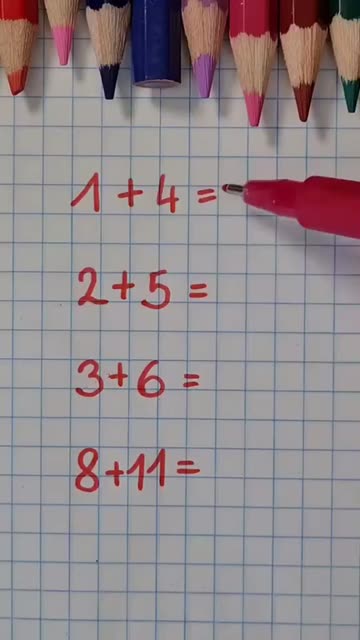 1 + 4 =
2 + 5 =
3 + 6 =
8 + 11 =